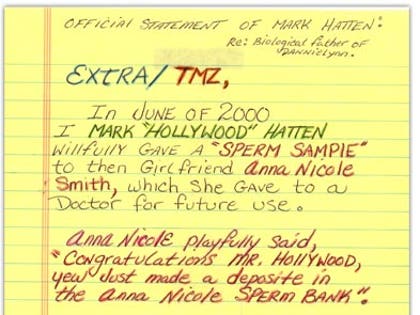 OFFICIAL STATEMENT OF MARK HATTEN:
Re: Biological father of
DANNIELYNN.
EXTRA/TMZ,
In JUNE OF 2000
I MARK "HOLLYWOOD" HATTEN
willfully GAVE A "SPERM SAMPLE"
to then Girlfriend Anna Nicole
Smith, which She GAVE to a
Doctor for future use.
Anna Nicole playfully said,
"Congratulations MR. HOLLYWOOD,
yew Just made a deposite in
the Anna Nicole SPERM BANK".